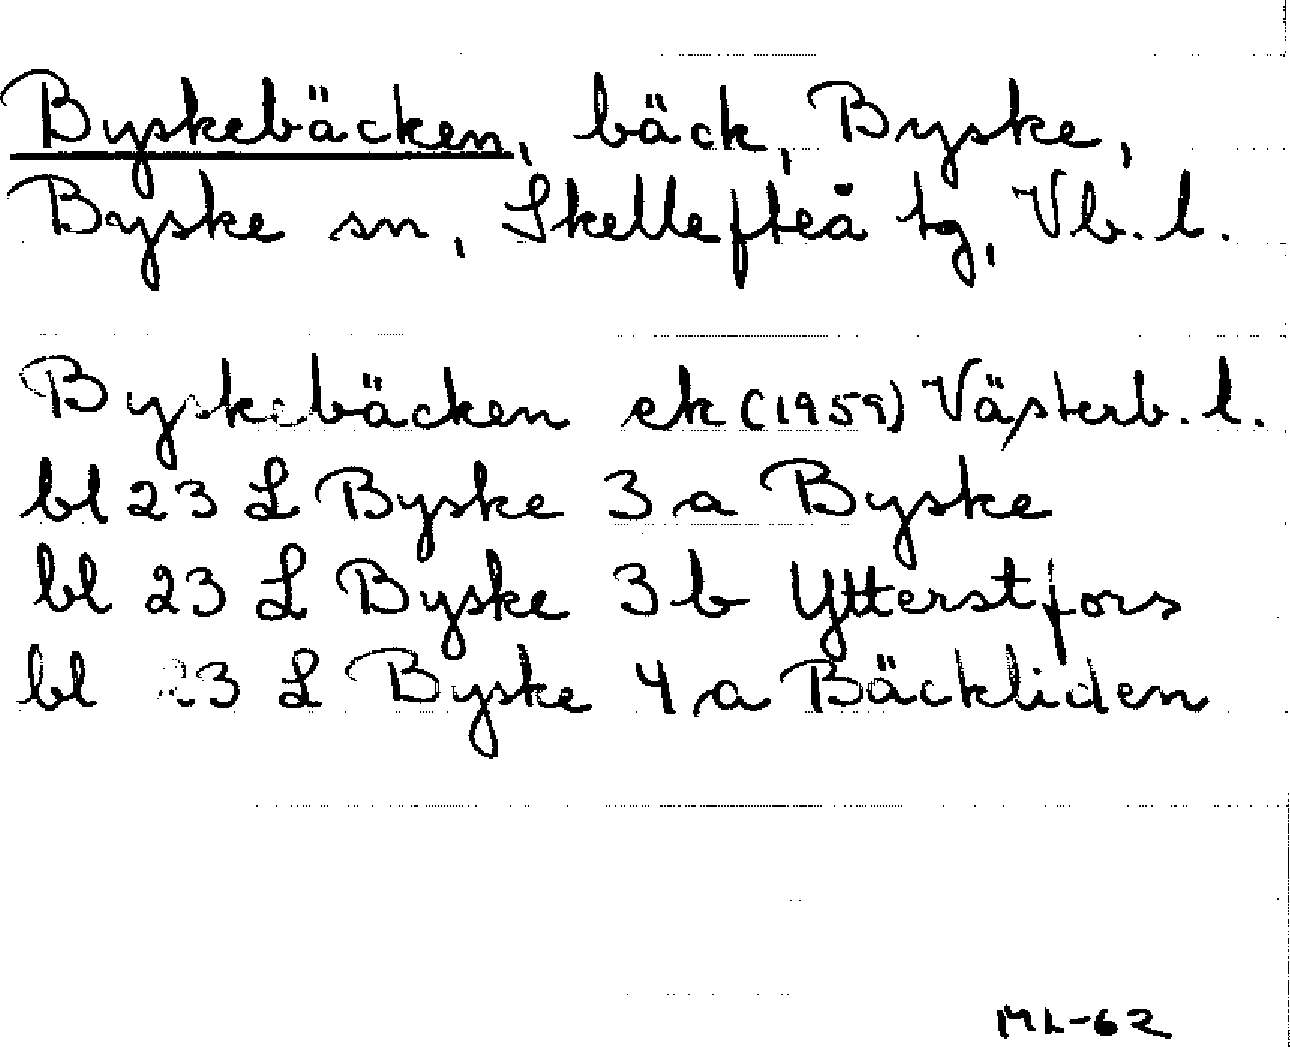 Byskebäcken, bäck, Byske,
Byske sn, Skellefteå tg, Vb. l.
Byskebäcken ek (1959) Västerb. l.
bl 23 L Byske 3 a Byske
bl 23 L Byske 3 b Ytterstfors
bl 23 L Byske 4 a Bäckliden
ML-62